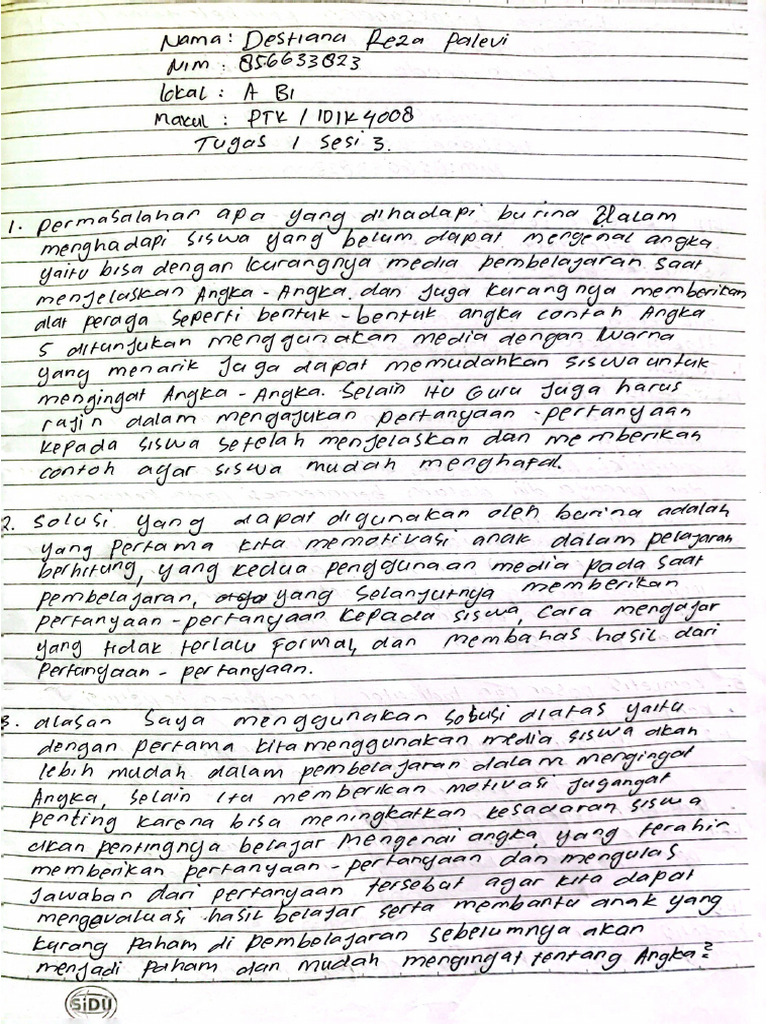 Nama : Destiana Reza Palevi
Nim : 856633823
Lokal : A BI
Makul : PTK / IDIK4008
Tugas 1 Sesi 3.
1. Permasalahan apa yang dihadapi burina dalam
menghadapi siswa yang belum dapat mengenal angka
yaitu bisa dengan kurangnya media pembelajaran saat
menjelaskan Angka-Angka. dan juga kurangnya memberikan
alat peraga seperti bentuk-bentuk angka contoh Angka
5 ditunjukan menggunakan media dengan warna
yang menarik juga dapat memudahkan siswa untuk
mengingat Angka-Angka. Selain itu Guru juga harus
rajin dalam mengajukan pertanyaan-pertanyaan
kepada siswa setelah menjelaskan dan memberikan
contoh agar siswa mudah menghafal.
2. Solusi yang dapat digunakan oleh burina adalah
yang pertama kita memotivasi anak dalam pelajaran
berhitung, yang kedua penggunaan media pada saat
pembelajaran, yang selanjutnya memberikan
pertanyaan-pertanyaan kepada siswa, cara mengajar
yang tidak terlalu formal, dan membahas hasil dari
Pertanyaan-pertanyaan.
3. alasan saya menggunakan solusi diatas yaitu
dengan pertama kita menggunakan media siswa akan
lebih mudah dalam pembelajaran dalam mengingat
Angka, selain itu memberikan motivasi jugangat
penting karena bisa meningkatkan kesadaran siswa
akan pentingnya belajar Mengenai angka, yang terahir
memberikan pertanyaan-pertanyaan dan mengulas
jawaban dari pertanyaan tersebat agar kita dapat
menggevaluasi hasil belajar serta membantu anak yang
kurang paham di pembelajaran sebelumnya akan
menjadi paham dan mudah mengingat tentang Angka²
SiDU